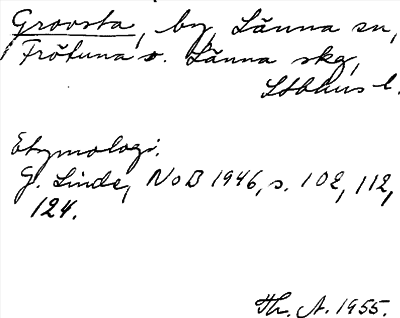 Grovsta, by, Länna sn,
Frötuna o. Länna skg,
Sthlms l.
Etymologi.
G. Linde, NoB 1946, s. 102, 112,
124.
Th. A. 1955.